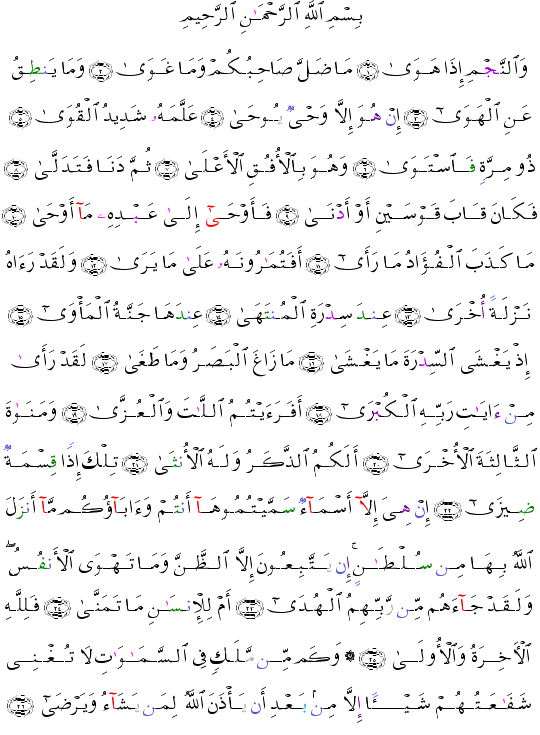 بِسْمِ ٱللَّهِ ٱلرَّحْمَـٰنِ ٱلرَّحِيمِ
وَٱلنَّجْمِ إِذَا هَوَىٰ ﴿١﴾ مَا ضَلَّ صَاحِبُكُمْ وَمَا غَوَىٰ ﴿٢﴾ وَمَا يَنطِقُ
عَنِ ٱلْهَوَىٰٓ ﴿٣﴾ إِنْ هُوَ إِلَّا وَحْىٌۭ يُوحَىٰ ﴿٤﴾ عَلَّمَهُۥ شَدِيدُ ٱلْقُوَىٰ ﴿٥﴾
ذُو مِرَّةٍۢ فَٱسْتَوَىٰ ﴿٦﴾ وَهُوَ بِٱلْأُفُقِ ٱلْأَعْلَىٰ ﴿٧﴾ ثُمَّ دَنَا فَتَدَلَّىٰ ﴿٨﴾
فَكَانَ قَابَ قَوْسَيْنِ أَوْ أَدْنَىٰ ﴿٩﴾ فَأَوْحَىٰٓ إِلَىٰ عَبْدِهِۦ مَآ أَوْحَىٰ ﴿١٠﴾
مَا كَذَبَ ٱلْفُؤَادُ مَا رَأَىٰٓ ﴿١١﴾ أَفَتُمَـٰرُونَهُۥ عَلَىٰ مَا يَرَىٰ ﴿١٢﴾ وَلَقَدْ رَءَاهُ
نَزْلَةً أُخْرَىٰ ﴿١٣﴾ عِندَ سِدْرَةِ ٱلْمُنتَهَىٰ ﴿١٤﴾ عِندَهَا جَنَّةُ ٱلْمَأْوَىٰٓ ﴿١٥﴾
إِذْ يَغْشَى ٱلسِّدْرَةَ مَا يَغْشَىٰ ﴿١٦﴾ مَا زَاغَ ٱلْبَصَرُ وَمَا طَغَىٰ ﴿١٧﴾ لَقَدْ رَأَىٰ
مِنْ ءَايَـٰتِ رَبِّهِ ٱلْكُبْرَىٰٓ ﴿١٨﴾ أَفَرَءَيْتُمُ ٱللَّـٰتَ وَٱلْعُزَّىٰ ﴿١٩﴾ وَمَنَوٰةَ
ٱلثَّالِثَةَ ٱلْأُخْرَىٰٓ ﴿٢٠﴾ أَلَكُمُ ٱلذَّكَرُ وَلَهُ ٱلْأُنثَىٰ ﴿٢١﴾ تِلْكَ إِذًۭا قِسْمَةٌۭ
ضِيزَىٰٓ ﴿٢٢﴾ إِنْ هِىَ إِلَّآ أَسْمَآءٌۭ سَمَّيْتُمُوهَآ أَنتُمْ وَءَابَآؤُكُم مَّآ أَنزَلَ
ٱللَّهُ بِهَا مِن سُلْطَـٰنٍ ۚ إِن يَتَّبِعُونَ إِلَّا ٱلظَّنَّ وَمَا تَهْوَى ٱلْأَنفُسُ ۖ
وَلَقَدْ جَآءَهُم مِّن رَّبِّهِمُ ٱلْهُدَىٰٓ ﴿٢٣﴾ أَمْ لِلْإِنسَـٰنِ مَا تَمَنَّىٰ ﴿٢٤﴾ فَلِلَّهِ
ٱلْـَٔاخِرَةُ وَٱلْأُولَىٰ ﴿٢٥﴾ ۞ وَكَم مِّن مَّلَكٍۢ فِى ٱلسَّمَـٰوَٰتِ لَا تُغْنِى
شَفَـٰعَتُهُمْ شَيْـًٔا إِلَّا مِنۢ بَعْدِ أَن يَأْذَنَ ٱللَّهُ لِمَن يَشَآءُ وَيَرْضَىٰٓ ﴿٢٦﴾